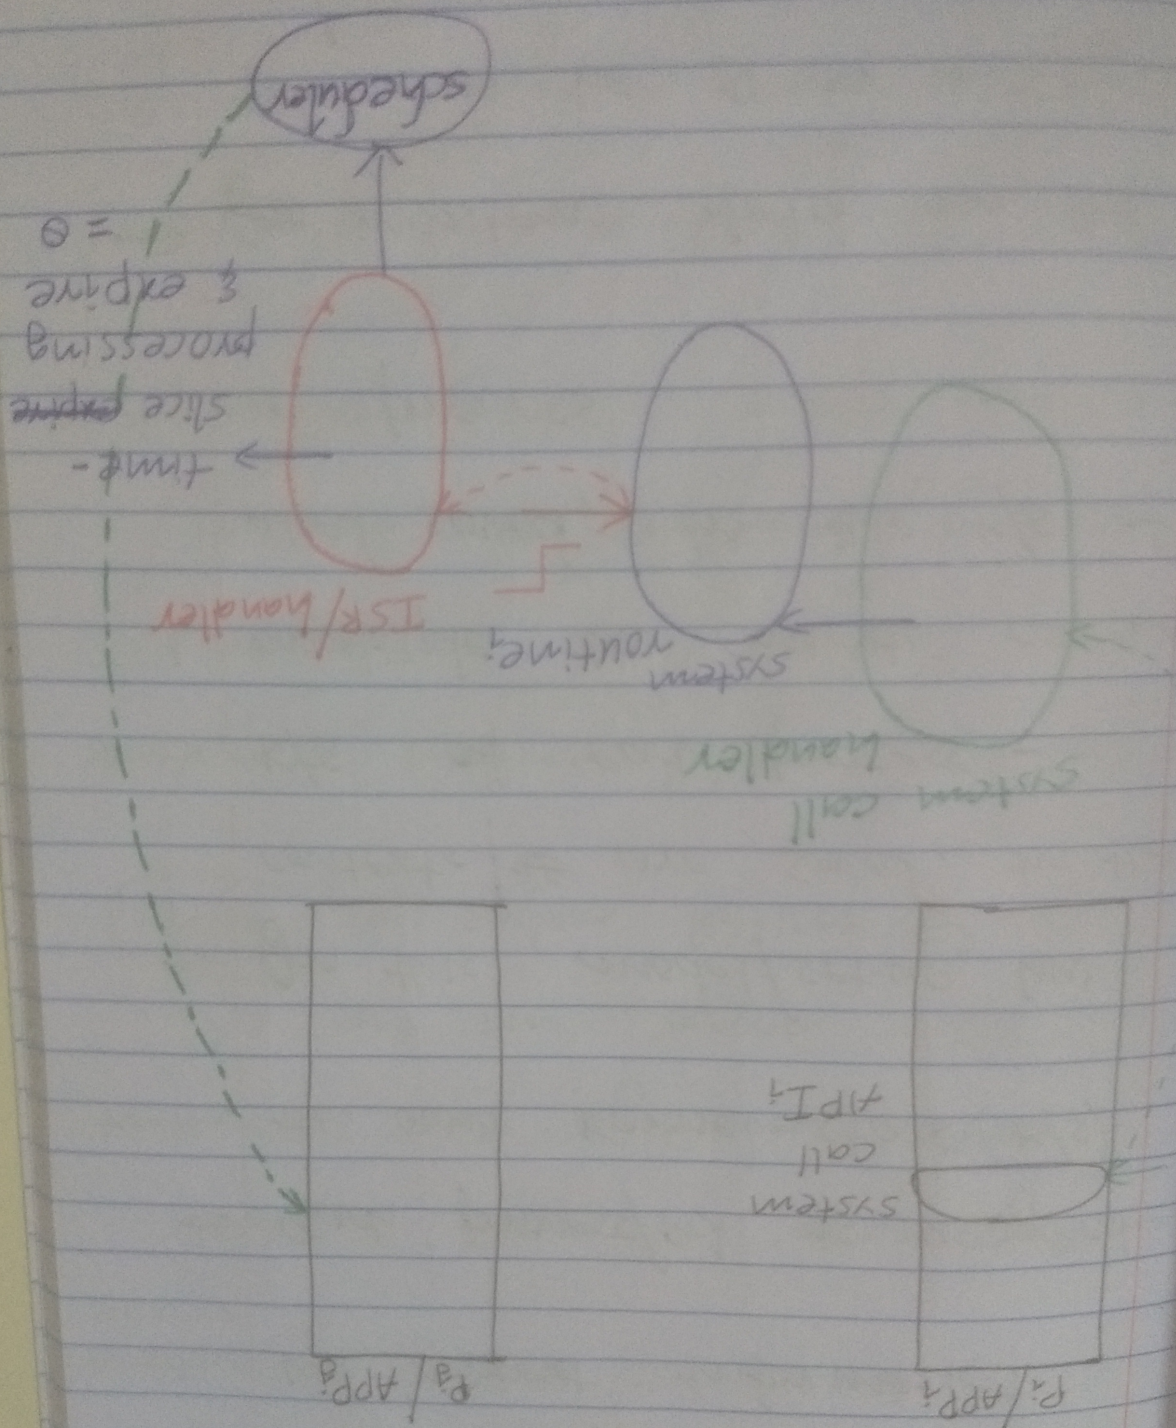 P₁/APP₁
system
call
API₁
system call
handler
system
routine₁
ISR/handler
time-
slice expire
processing
& expire
= 0
scheduler